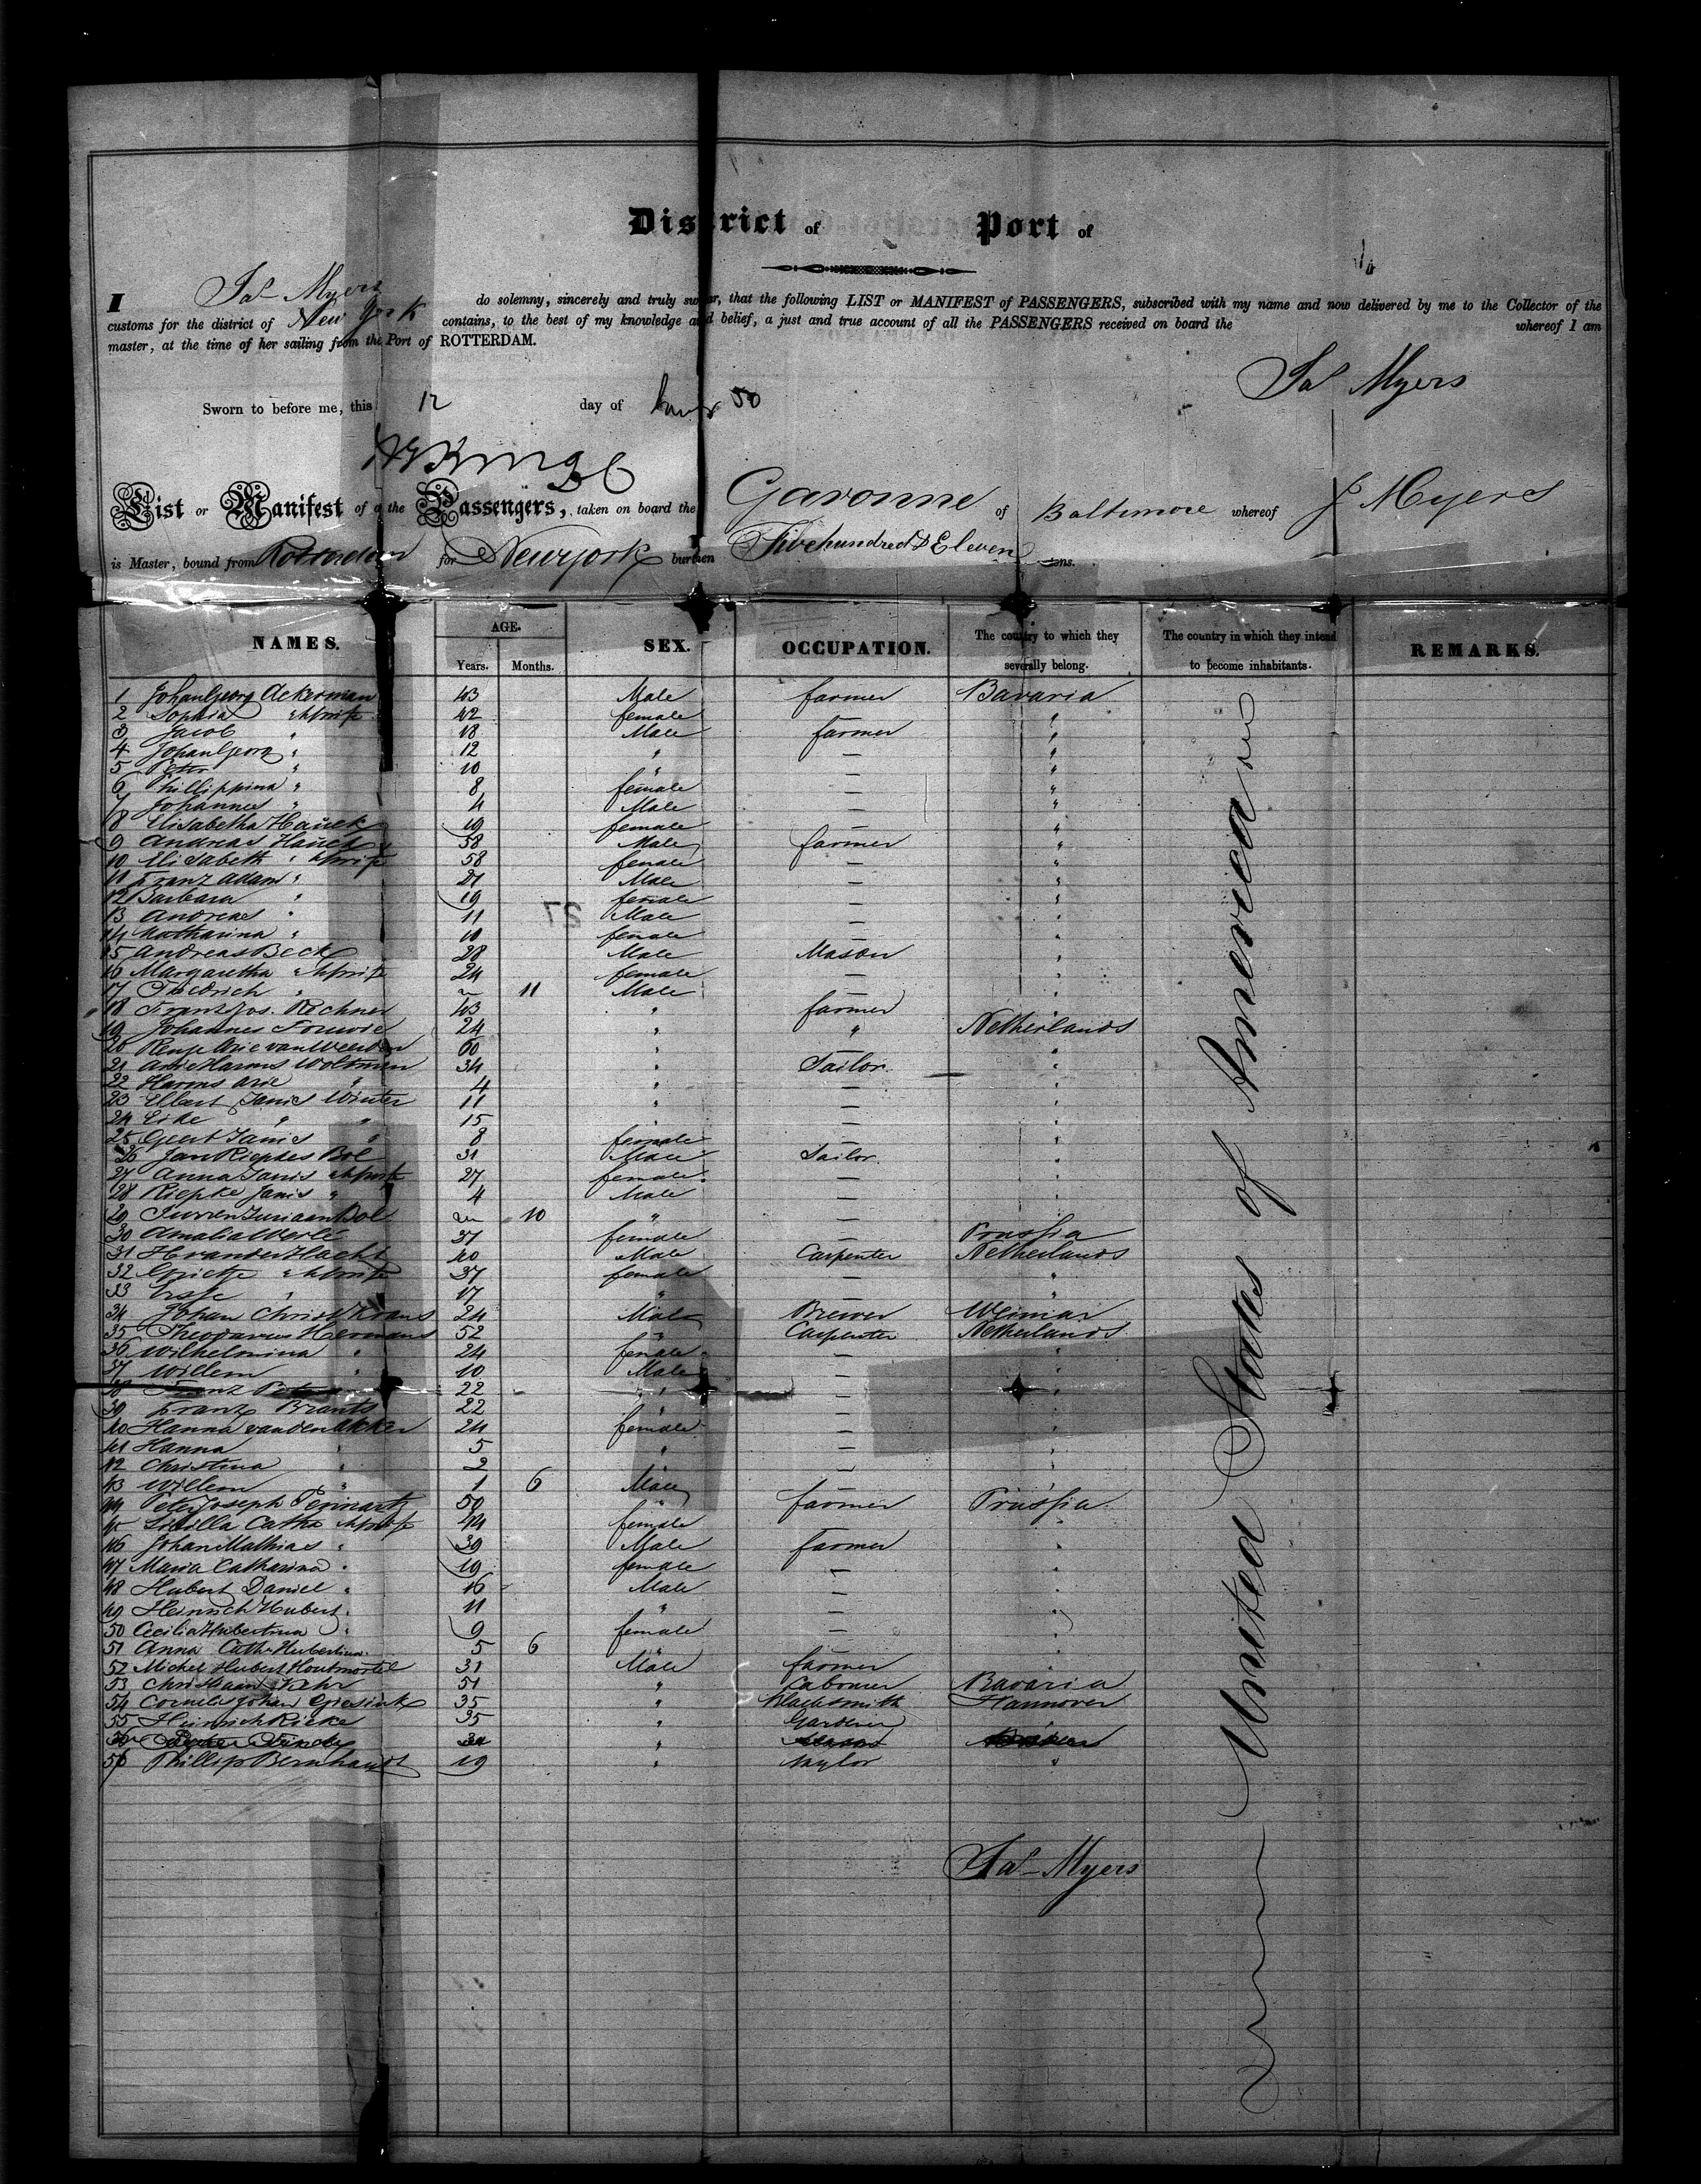 District of Port of
I Jas Myers do solemny, sincerely and truly swear, that the following LIST or MANIFEST of PASSENGERS, subscribed with my name and now delivered by me to the Collector of the
customs for the district of New York contains, to the best of my knowledge and belief, a just and true account of all the PASSENGERS received on board the whereof I am
master, at the time of her sailing from the Port of ROTTERDAM.
Jas Myers
Sworn to before me, this 12 day of 50
List or Manifest of the Passengers, taken on board the Garonne of Baltimore whereof J Myers
is Master, bound from Rotterdam for Newyork burthen Fivehundred & Eleven tons.
NAMES. AGE. SEX. OCCUPATION. The country to which they severally belong. The country in which they intend to become inhabitants. REMARKS.
Years. Months.
1 Johan Georg Ackerman 43 Male farmer Bavaria
2 Sophia " 42 female "
3 Jacob " 18 Male farmer "
4 Johan Georg " 12 " — "
5 Peter " 10 " — "
6 Phillippina " 8 female — "
7 Johannes " 4 Male — "
8 Elisabetha Hauck 19 female — "
9 Andreas Hauck 58 Male farmer "
10 Elisabeth " 58 female — "
11 Franz Adam " 21 Male — "
12 Barbara " 19 female — "
13 Andreas " 11 Male — "
14 Katharina " 10 female — "
15 Andreas Beck 28 Male Mason "
16 Margaretha 24 female — "
17 Friedrich " 11 Male — "
18 Franz Jos. Rechner 43 " farmer "
19 Johannes 24 " " Netherlands
20 Arie van Weerden 60 " — "
21 Arie Harms Woltman 34 " Tailor "
22 Harms Arie " 4 " — "
23 Elbert Janis Winter 11 " — "
24 Eike " " 15 " — "
25 Geert Janis " 8 female — "
26 Jan Riepkes Bol 31 Male Tailor "
27 Anna Janis 27 female — "
28 Riepke Janis " 4 Male — "
29 Juriaan Bol 10 " — "
30 Amalia Werle 37 female — Prussia
31 H van der Hacht 40 Male Carpenter Netherlands
32 37 female — "
33 17 " — "
34 Johan Christ Krans 24 Male Brewer Weimar
35 Theodorus Hermans 52 " Carpenter Netherlands
36 Wilhelmina " 24 female — "
37 Willem " 10 Male — "
38 Franz 22 " — "
39 Franz Brants 22 " — "
40 Hanna van den Akker 24 female — "
41 Hanna " 5 " — "
42 Christina " 2 " — "
43 Willem " 1 6 Male — "
44 Peter Joseph 50 " farmer Prussia
45 Sibilla Catha 44 female "
46 Johan Mathias " 39 Male farmer "
47 Maria Catharina " 19 female — "
48 Hubert Daniel " 16 Male — "
49 Heinrich Hubert " 11 " — "
50 Cecilia Hubertina " 9 female — "
51 Anna Cath. Hubertina " 5 6 " — "
52 Michel Hubert 31 Male farmer "
53 Christiaan Kehr 51 " Labourer Bavaria
54 Cornelis Johan Giesink 35 " Blacksmith Hannover
55 Heinrich Ricke 35 " Gardener "
56 Phillip Bernhardt 19 " Taylor "
United States of America
Jas Myers